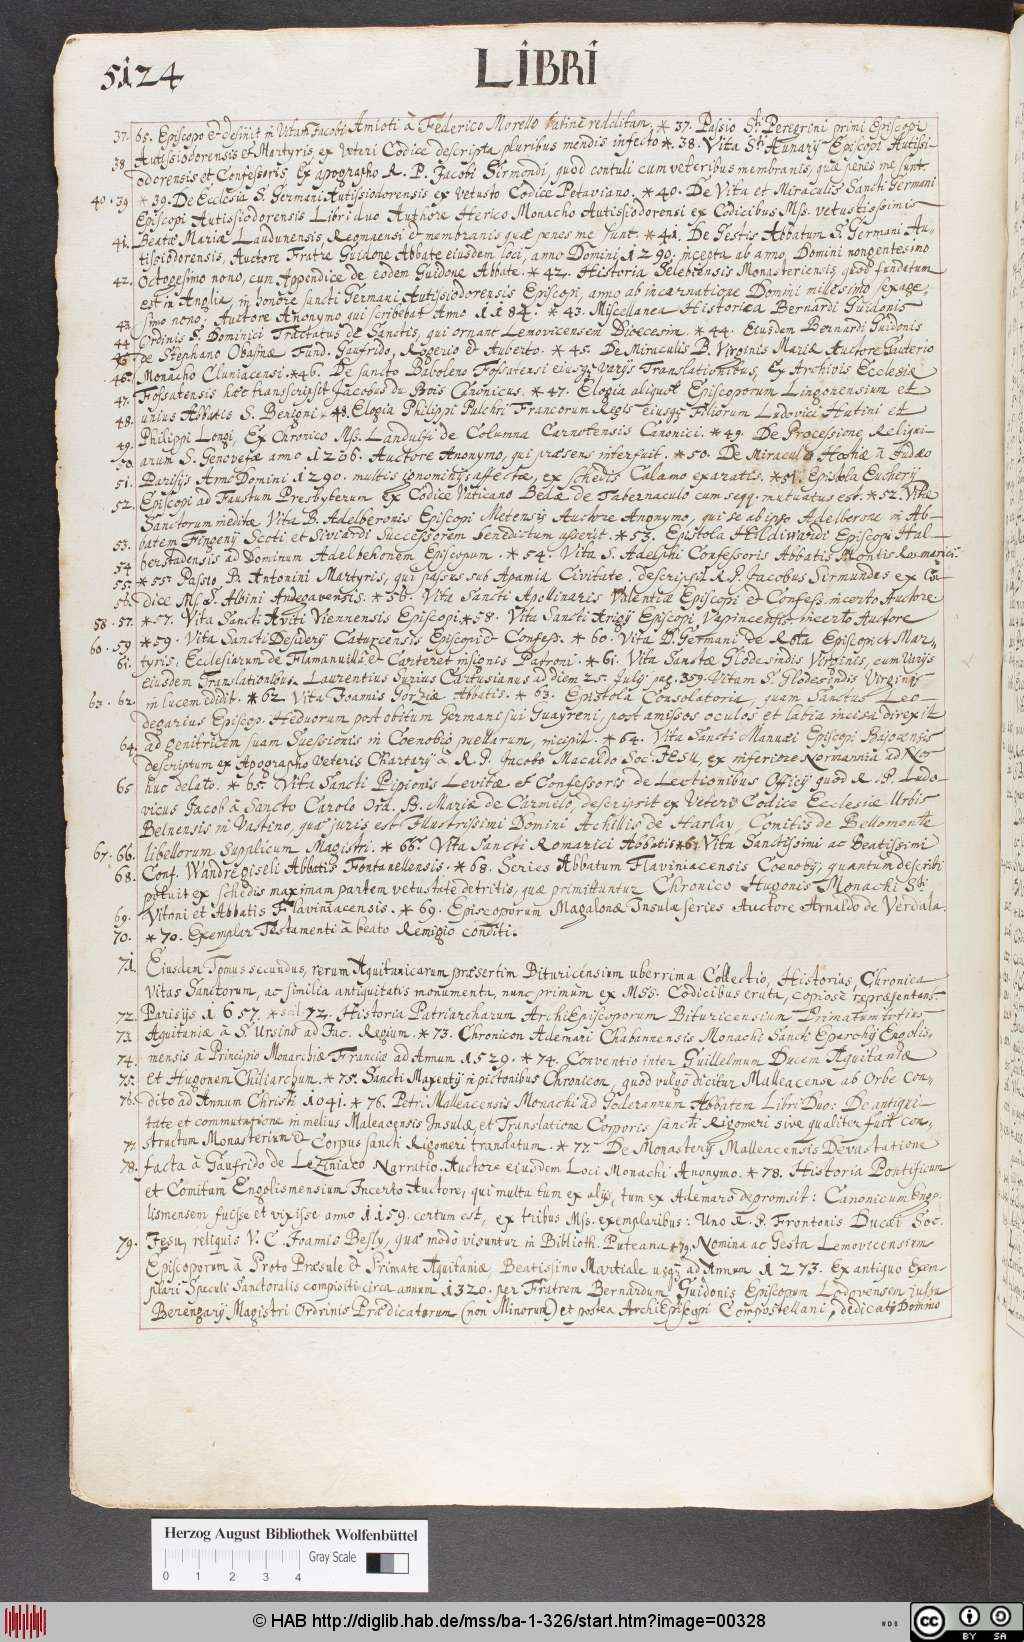 5124
LIBRI
37. 65. Episcopo et desinit in Vitam Jacobi Amioti à Federico Morello latinè redditam. * 37. Passio Sti Peregrini primi Episcopi
38 Autissiodorensis et Martyris ex Veteri Codice descripta pluribus mendis infecto * 38. Vita Sti Aunarij Episcopi Autissi-
odorensis et Confessoris, Ex apographo R. P. Jacobi Sirmondi, quod contuli cum veteribus membranis, quæ penes me sunt.
40 . 39 * 39. De Ecclesia S. Germani Autissiodorensis ex Vetusto Codice Petaviano. * 40. De Vita et Miraculis Sancti Germani
Episcopi Autissiodorensis Libri duo Authore Herico Monacho Autissiodorensi ex Codicibus Mss. vetustissimis
41. Beatæ Mariæ Laudunensis, Reomaensi et membranis quæ penes me sunt. * 41. De Gestis Abbatum S. Germani Au-
tissiodorensis, Auctore Fratre Guidone Abbate eiusdem loci, anno Domini 1290. incepta ab anno, Domini nongentesimo
42. Octogesimo nono, cum Appendice de eodem Guidone Abbate. * 42. Historia Selebiensis Monasteriensis, quod fundatum
est in Anglia, in honore sancti Germani Autissiodorensis Episcopi, anno ab incarnatione Domini milesimo sexage-
43 simo nono: Auctore Anonymo qui scribebat Anno 1184. * 43. Miscellanea Historica Bernardi Guidonis
44 Ordinis S. Dominici Tractatus de Sanctis, qui ornant Lemovicensem Dioecesim. * 44. Eiusdem Bernardi Guidonis
45 de Stephano Obasinæ Fund. Gaufrido, Rogerio et Auberto. * 45. De Miraculis B. Virginis Mariæ Auctore Gauterio
46. Monacho Cluniacensi. * 46. De sancto Baboleno Fossatensi eiusq; varijs Translationibus, Ex Archivis Ecclesiæ
47. Fossatensis hæc transcripsit Jacobus du Bois Canonicus. * 47. Elogia aliquot Episcoporum Lingonensium et
48. unius Abbatis S. Benigni. * 48. Elogia Philippi Pulchri Francorum Regis Eiusq; Filiorum Ludovici Hutini et
49. Philippi Longi, Ex Chronico Mss. Landulfi de Columna Carnotensis Canonici. * 49. De Processione Reliqui-
50. arum S. Genovefæ anno 1206. Auctore Anonymo, qui præsens interfuit. * 50. De Miraculo Hostiæ à Judæo
51. Parisijs Anno Domini 1290. multis ignominijs affectæ, ex schedis Calamo exaratis. * 51. Epistola Eucherij
52. Episcopi ad Faustum Presbyterum Ex Codice Vaticano Bedæ de Tabernaculo cum seqq. mutuatus est. * 52. Vita
Sanctorum inedita Vita B. Adelberonis Episcopi Metensis Auctore Anonymo, qui se ab ipso Adelberone in Ab-
53. batem Fingenij Scoti et Siviardi Successorem benedictum asserit. * 53. Epistola Hildiwardi Episcopi Hal-
54 berstadensis ad Dominum Adelbehonem Episcopum. * 54. Vita S. Adelphi Confessoris Abbatis Montis Romarici.
55. * 55. Passio Bi Antonini Martyris, qui passus sub Apamia Civitate, descripsit R. P. Jacobus Sirmundus ex Co-
56. dice Ms. S. Albini Andegavensis. * 56. Vita Sancti Apollinaris Valentiæ Episcopi et Confess. incerto Auctore
58. 57. * 57. Vita Sancti Aviti Viennensis Episcopi * 58. Vita Sancti Arigij Episcopi Vapincensis incerto Auctore
60. 59 * 59. Vita Sancti Desiderij Caturcensis Episcopi et Confess. * 60. Vita B. Germani de Rota Episcopi et Mar-
61. tyris, Ecclesiarum de Flamanuilla et Carteret insignis Patroni. * 61. Vita Sanctæ Glodesindis Virginis, cum Varijs
eiusdem Translationibus. Laurentius Surius Cartusianus ad diem 25. July pag. 359. Vitam S. Glodesindis Virginis
63. 62. in lucem edidit. * 62. Vita Joannis Gorziæ Abbatis. * 63. Epistola Consolatoria, quam Sanctus Leo-
degarius Episcop. Heduorum post obitum Germani sui Guayreni, post amissos oculos et labia incisa direxit
64. ad genitricem suam Suessionis in Coenobio puellarum, incipit. * 64. Vita Sancti Manuæi Episcopi Bajocensis
descriptum ex Apographo Veteris Chartarij à R. P. Jacobo Macaldo Soc. Jesu, ex inferiore Normannia ad No-
65 huc delato. * 65. Vita Sancti Pipionis Levitæ et Confessoris de Lectionibus Officij quod R. P. Ludo-
vicus Jacob à Sancto Carolo Ord. B. Mariæ de Carmelo, descripsit ex Veteri Codice Ecclesiæ Urbis
Belnensis in Vastino, quæ juris est Illustrissimi Domini Achillis de Harlay, Comitis de Bellomonte
67. 66. libellorum Supplicum Magistri. * 66. Vita Sancti Romarici Abbatis * 67. Vita Sanctissimi ac Beatissimi
68. Conf. Wandregiseli Abbatis Fontanellensis. * 68. Series Abbatum Flaviniacensis Coenobij, quantum describi
potuit ex schedis maximam partem vetustate detritis, quæ primittuntur Chronico Hugonis Monachi Sti
69. Vitoni et Abbatis Flaviniacensis. * 69. Episcoporum Magalonæ Insulæ series Auctore Arnaldo de Verdala.
70. * 70. Exemplar Testamenti à beato Remigio conditi.
71. Eiusdem Tomus secundus, rerum Aquitanicarum præsertim Bituricensium uberrima Collectio, Historias, Chronica
Vitas Sanctorum, ac similia antiquitatis monumenta, nunc primum ex MSS. Codicibus eruta, copiosè repræsentans.
72. Parisijs 1657. * 72. Historia Patriarcharum ArchiEpiscoporum Bituricensium Primatum totius
73. Aquitaniæ à S. Ursino ad Jac. Regium. * 73. Chronicon Ademari Chabannensis Monachi Sancti Eparchij Engolis-
74. mensis à Principio Monarchiæ Franciæ ad Annum 1529. * 74. Conventio inter Guillelmum Ducem Aquitaniæ
75. et Hugonem Chiliarchum. * 75. Sancti Maxentij in pictonibus Chronicon, quod vulgò dicitur Malleacense ab Orbe Con-
76. dito ad Annum Christi 1041. * 76. Petri Malleacensis Monachi ad Goderannum Abbatem Libri Duo: De antiqui-
tate et commutatione in melius Maleacensis Insulæ, et Translatione Corporis sancti Rigomeri sive qualiter fuit con-
77 structum Monasterium et Corpus sancti Rigomeri translatum. * 77. De Monasterij Malleacensis Devastatione
78. facta à Gaufrido de Leziniaco Narratio. Auctore eiusdem Loci Monachi Anonymo. * 78. Historia Pontificum
et Comitum Engolismensium Incerto Auctore, qui multa tum ex alijs, tum ex Ademaro depromsit: Canonicum Engo-
lismensem fuisse et vixisse anno 1159. certum est, ex tribus Mss. exemplaribus: Uno R. P. Frontonis Ducæi Soc.
79. Jesu, reliquis V. C. Joannis Besly, quæ modo visuntur in Biblioth. Puteana * 79. Nomina ac Gesta Lemovicensium
Episcoporum à Proto Præsule et Primate Aquitaniæ, Beatissimo Martiale usq; ad Annum 1273. Ex antiquo Exem-
plari Speculi Sanctoralis compositi circa annum 1320. per Fratrem Bernardum Guidonis Episcopum Lodovensem jussu
Berengarij Magistri Ordinis Prædicatorum (non Minorum) et postea ArchiEpiscopi Compostellani, dedicatij Domino
Herzog August Bibliothek Wolfenbüttel
Gray Scale
0 1 2 3 4
© HAB http://diglib.hab.de/mss/ba-1-326/start.htm?image=00328
cc BY SA